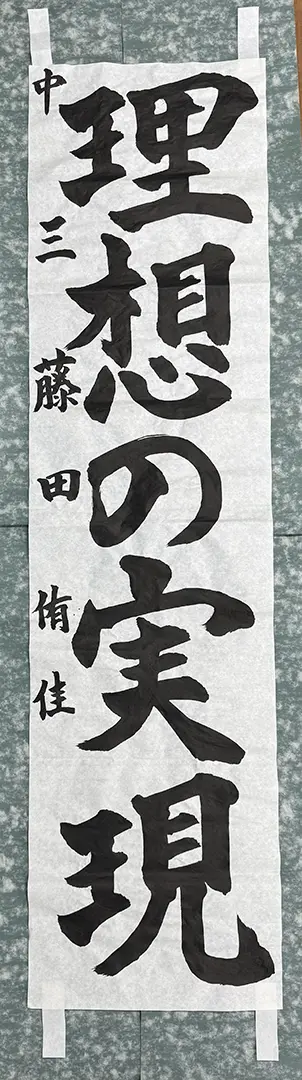 理想の実現
中三 藤田侑佳